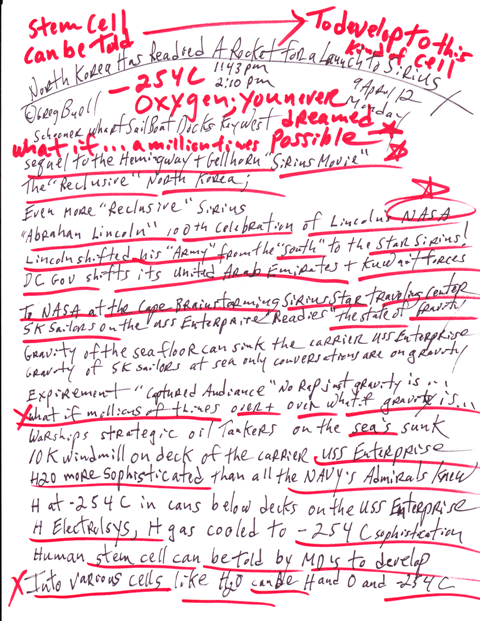 Stem Cell
can be told
To develop to this
kind of cell
North Korea Has Readied A Rocket for a Launch To Sirius
-254C
1:43 pm
2:10 pm
9 April 12
Monday
©Greg Buell
Oxygen; you never
dreamed
Schooner Wharf Sail Boat Docks Key West
what if... a million times possible
sequel to the Hemingway + Gellhorn "Sirius Movie"
The "Reclusive" North Korea;
Even more "Reclusive" Sirius
"Abrahan Lincoln" 100th celebration of Lincolns NASA
Lincoln shifted his "Army" from the "South" to the Star Sirius!
DC Gov shifts its United Arab Emirates + Kuwait forces
To NASA at the Cape Brainstorming Sirius Star Traveling Center
5K Sailors on the USS Enterprise Readies "the state of Gravity
Gravity of the sea floor can sink the carrier USS Enterprise
gravity of 5K sailors at sea only conversations are on gravity
Expirement "Captured Audiance" No Rap just gravity is...
what if millions of times over + over what if gravity is...
Warships strategic oil Tankers on the sea's sunk
10K windmill on deck of the carrier USS Enterprise
H2O more Sophisticated than all the NAVY's Admirals knew
H at -254 C in cans below decks on the USS Enterprise
H Electrolsys, H gas cooled to -254 C sophistication
Human stem cell can be told by MD's to develop
Into various cells like H2O can be H and O and -254 C